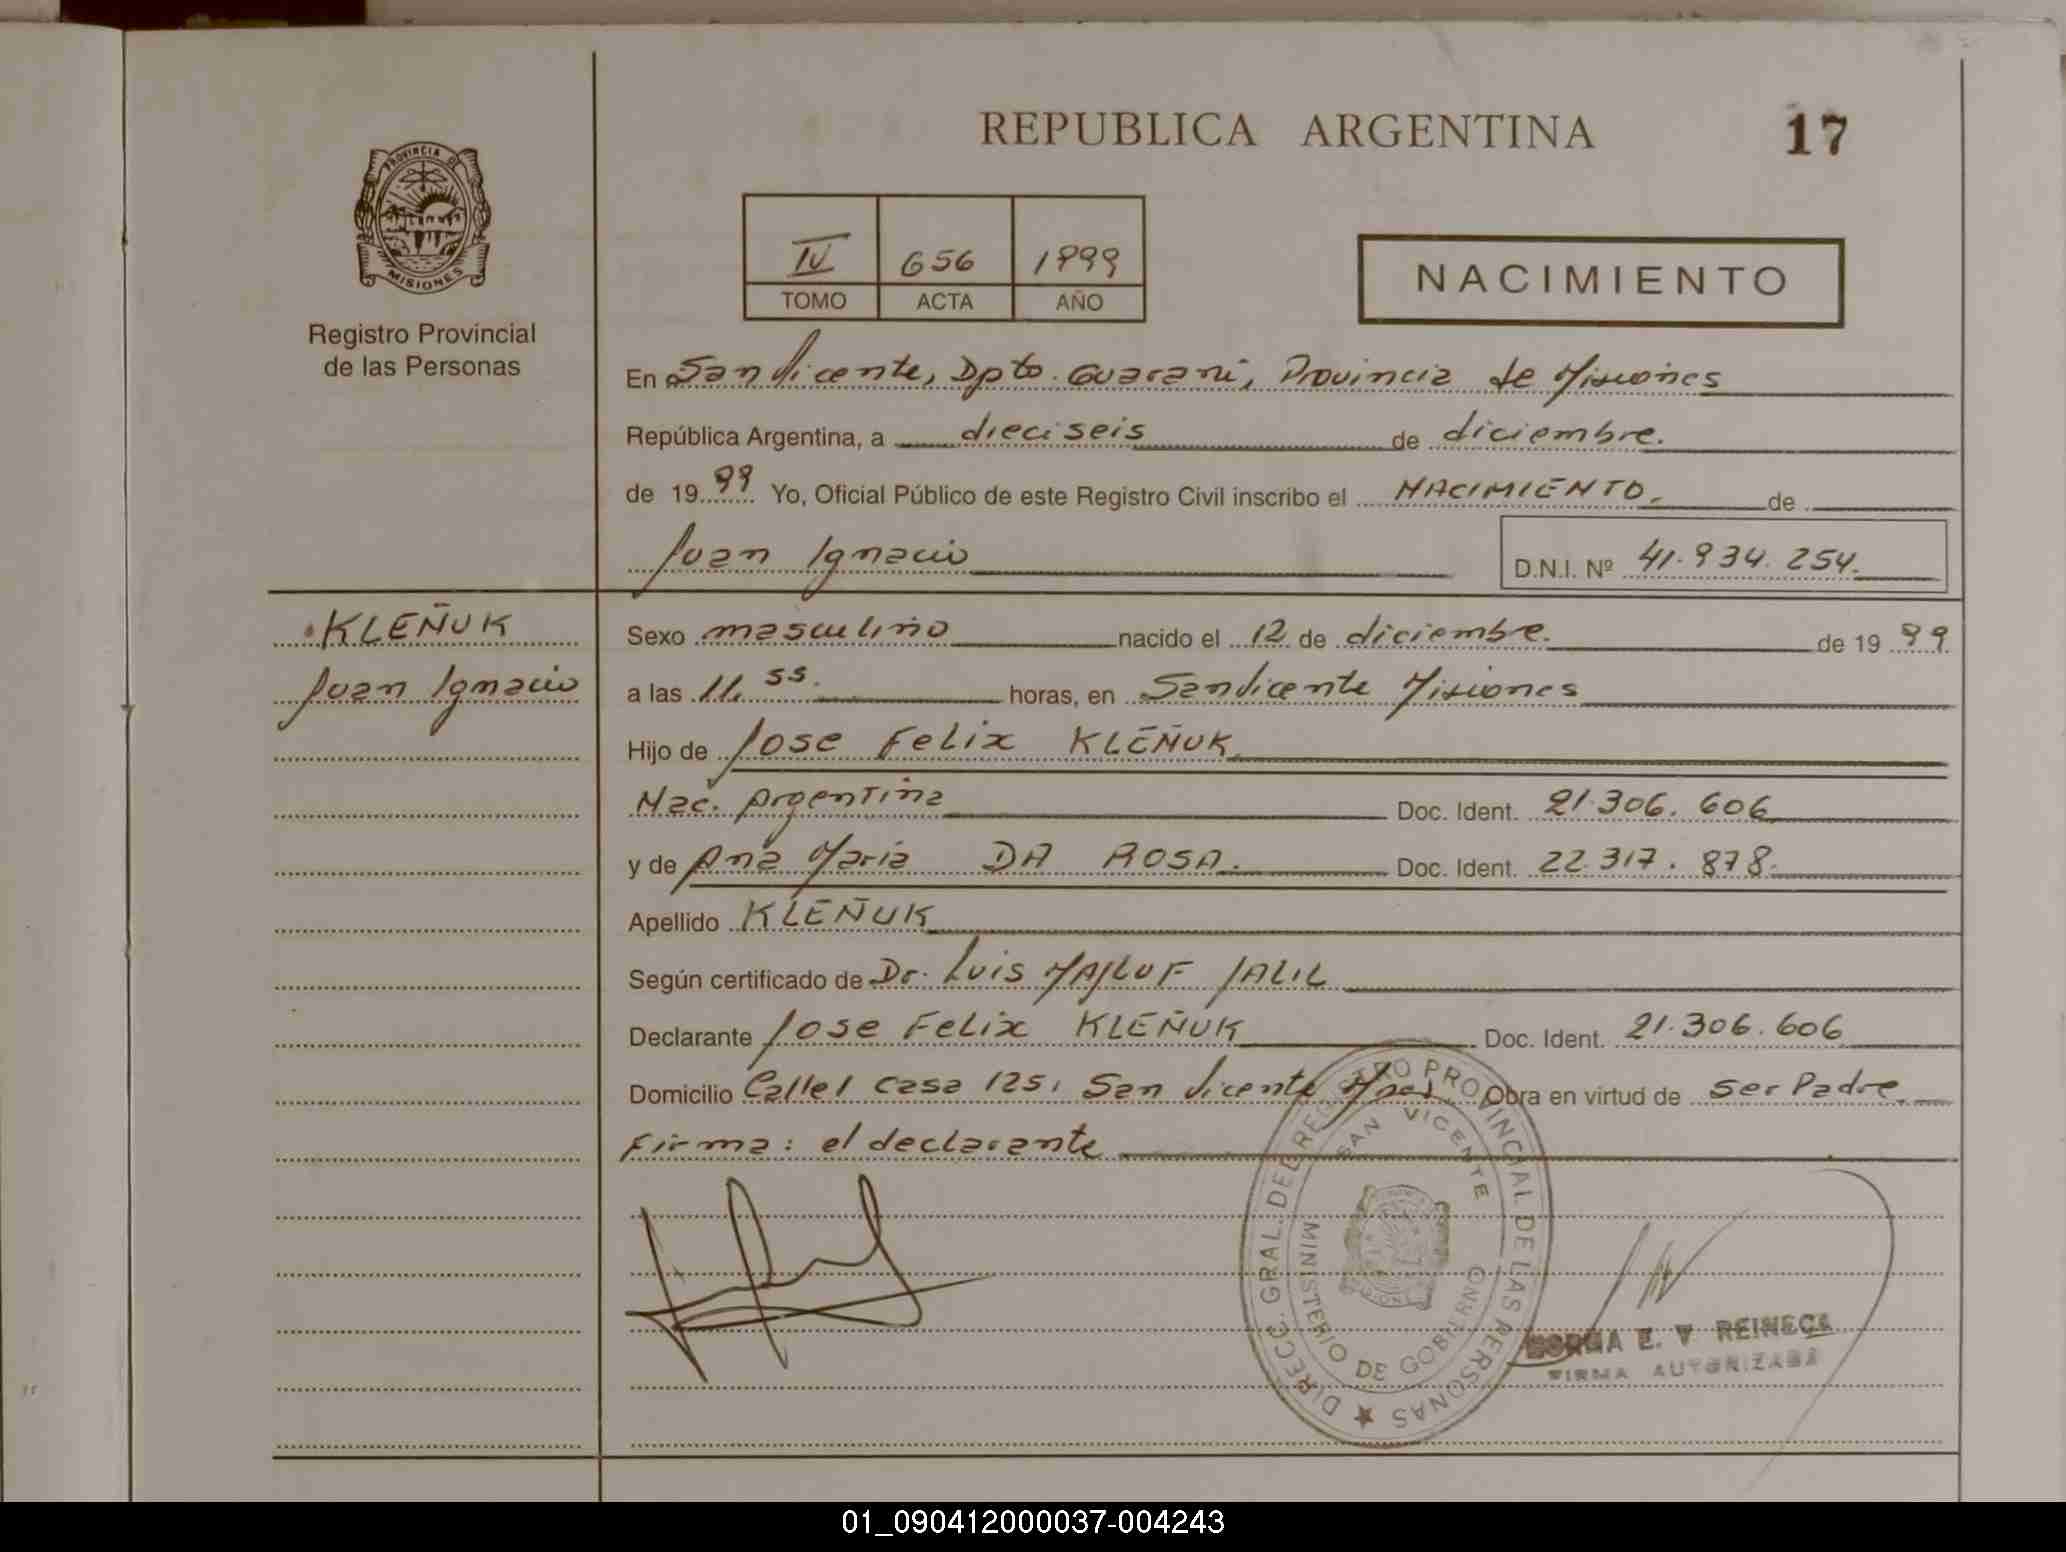 REPUBLICA ARGENTINA
17
PROVINCIA DE
MISIONES
Registro Provincial
de las Personas
IV 656 1999
TOMO ACTA AÑO
NACIMIENTO
En San Vicente, Dpto. Guaraní, Provincia de Misiones
República Argentina, a dieciseis de diciembre.
de 19 99 Yo, Oficial Público de este Registro Civil inscribo el NACIMIENTO. de
Juan Ignacio
D.N.I. Nº 41.934.254.
KLEÑUK
Juan Ignacio
Sexo masculino nacido el 12 de diciembre. de 19 99
a las 11.55. horas, en San Vicente Misiones
Hijo de Jose Felix KLEÑUK
Nac. Argentina Doc. Ident. 21.306.606
y de Ana Maria DA ROSA. Doc. Ident. 22.317.878.
Apellido KLEÑUK
Según certificado de Dr. Luis MAJLUF JALIL
Declarante Jose Felix KLEÑUK Doc. Ident. 21.306.606
Domicilio Calle 1 casa 125, San Vicente Mnes. Obra en virtud de ser Padre.
Firma: el declarante
DIRECC. GRAL. DEL REGISTRO PROVINCIAL DE LAS PERSONAS
SAN VICENTE
MINISTERIO DE GOBIERNO
NORMA E. V REINECK
FIRMA AUTORIZADA
01_090412000037-004243